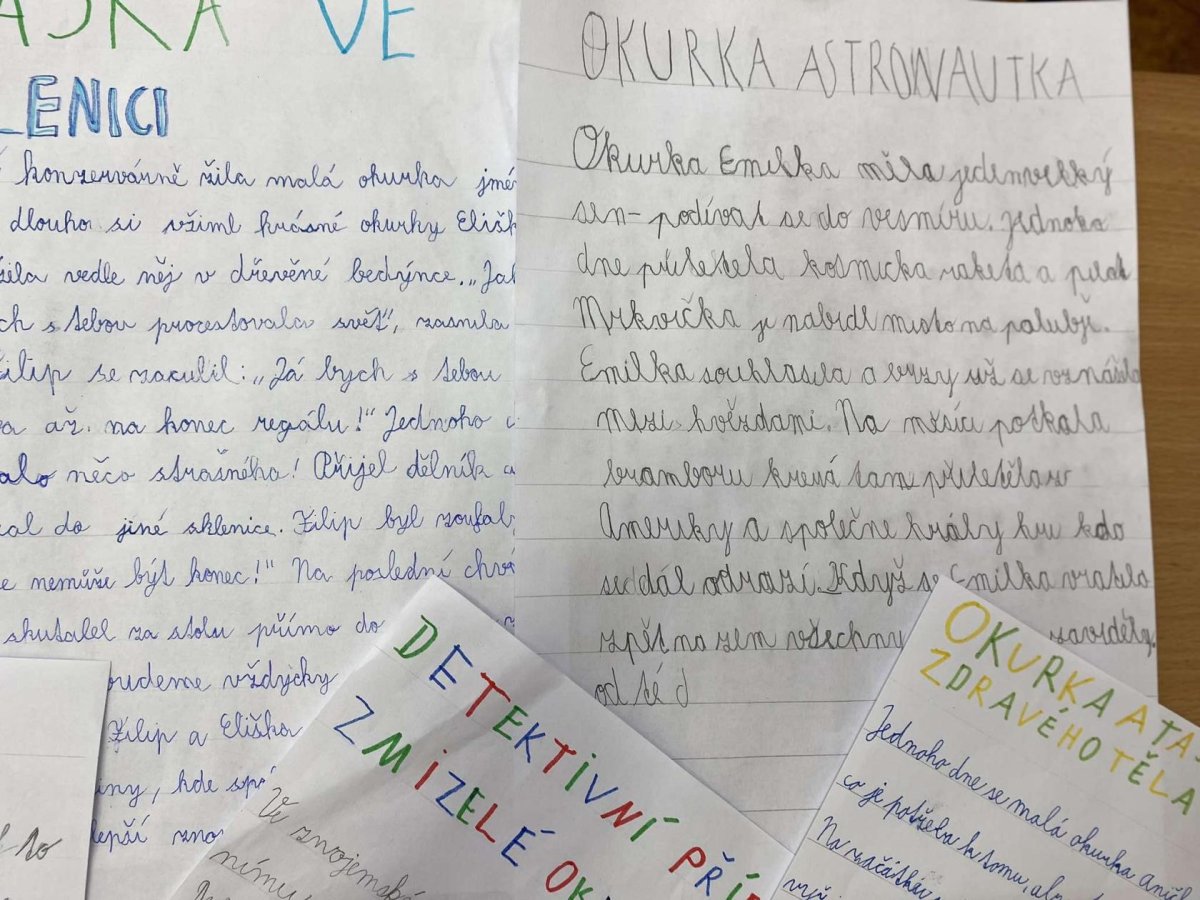 ÁSKA VE
LENICI
konzervárně žila malá okurka jmé
dlouho si všiml krásné okurky Elišk
žila vedle něj v dřevěné bedýnce. „Jak
ch s tebou procestovala svět“, zasnila
Filip se zakulil: „Já bych s tebou
a až na konec regálu!“ Jednoho
alo něco strašného! Přijel dělník a
al do jiné sklenice. Filip byl zoufal
e nemůže být konec!“ Na poslední chví
skutalel za stolu přímo do
budeme vždycky
Filip a Eliška
iny, kde spá
lepší zna
OKURKA ASTRONAUTKA
Okurka Emilka měla jeden velký
sen - podívat se do vesmíru. Jednoho
dne přiletěla kosmická raketa a pilot
Mrkvička jí nabídl místo na palubě.
Emilka souhlasila a brzy už se vznášela
mezi hvězdami. Na měsíci potkala
bramboru která tam přiletěla z
Ameriky a společně hrály hru kdo
se dál odrazí. Když se Emilka vrátila
zpět na zem všechny záviděly.
od té d
DETEKTIVNÍ PŘÍ
ZMIZELÉ OK
Ve znojemské
nímu
OKURKA A TA
ZDRAVÉHO TĚLA
Jednoho dne se malá okurka Anič
co je potřeba k tomu, ab
Na začátku
to